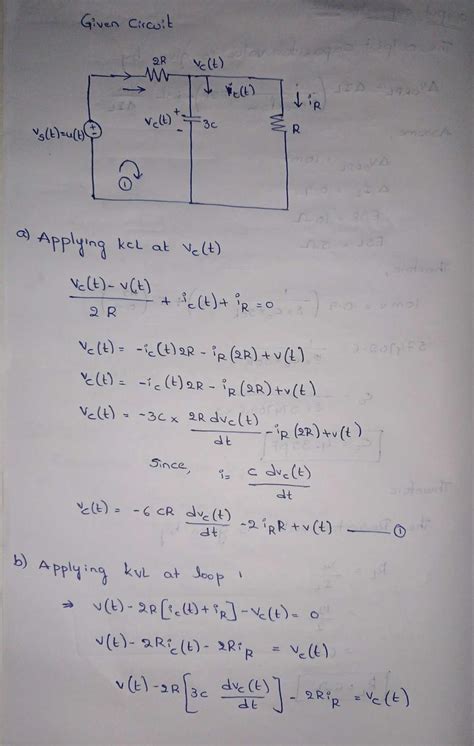 Given Circuit
2R
Vc(t)
ic(t)
iR
Vc(t)
+
-
3C
R
Vs(t)=u(t)
1
a) Applying KCL at Vc(t)
Vc(t) - v(t)
2R
+ ic(t) + iR = 0
Vc(t) = -ic(t) 2R - iR (2R) + v(t)
Vc(t) = -ic(t) 2R - iR (2R) + v(t)
Vc(t) = -3C × 2R dvc(t)
dt
- iR (2R) + v(t)
Since, i = c dvc(t)
dt
Vc(t) = -6 CR dvc(t)
dt
- 2 iR R + v(t) — 1
b) Applying KVL at loop 1
⇒ v(t) - 2R [ic(t) + iR] - Vc(t) = 0
v(t) - 2R ic(t) - 2R iR = Vc(t)
v(t) - 2R [3C dvc(t)
dt
] - 2R iR = Vc(t)